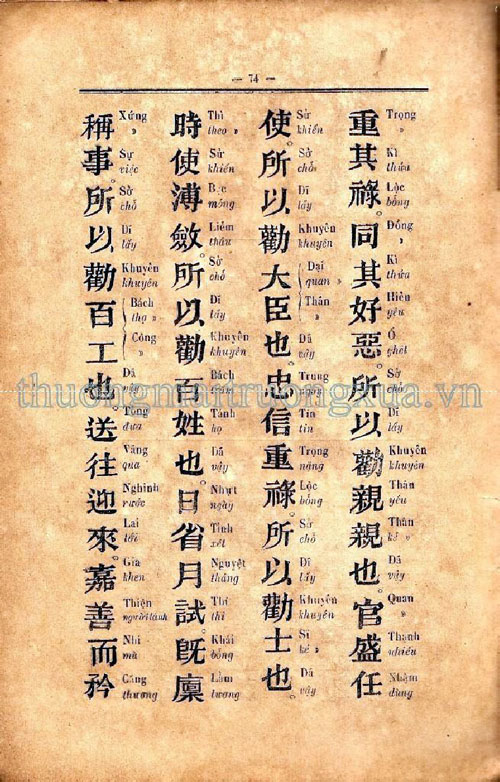 — 74 —
重其祿。同其好惡。所以勸親親也。官盛任
Trọng Kì Lộc Đồng Kì Hiếu Ố Sở Dĩ Khuyên Thân Thân Dã Quan Thạnh Nhậm
» thửa bổng » thửa yêu ghét chỗ lấy khuyên yêu kẻ » vậy » nhiều dùng
使。所以勸大臣也。忠信重祿。所以勸士也。
Sử Sở Dĩ Khuyên Đại Thần Dã Trung Tín Trọng Lộc Sở Dĩ Khuyên Sĩ Dã
khiến chỗ lấy khuyên quan » » vậy tin nặng bổng chỗ lấy khuyên kẻ » vậy
時使薄斂。所以勸百姓也。日省月試。旣廩
Thì Sử Bạc Liễm Sở Dĩ Khuyên Bách Tánh Dã Nhựt Tỉnh Nguyệt Thí Khái Lẫm
theo » khiến mỏng thâu chỗ lấy khuyên trăm họ vậy ngày xét tháng thi bổng lương
稱事。所以勸百工也。送往迎來。嘉善而矜
Xứng Sự Sở Dĩ Khuyên Bách Công Dã Tống Vãng Nghinh Lai Gia Thiện Nhi Căng
» việc chỗ lấy khuyên thợ » » vậy đưa qua rước tới khen người lành mà thương
thuongmaitruongxua.vn